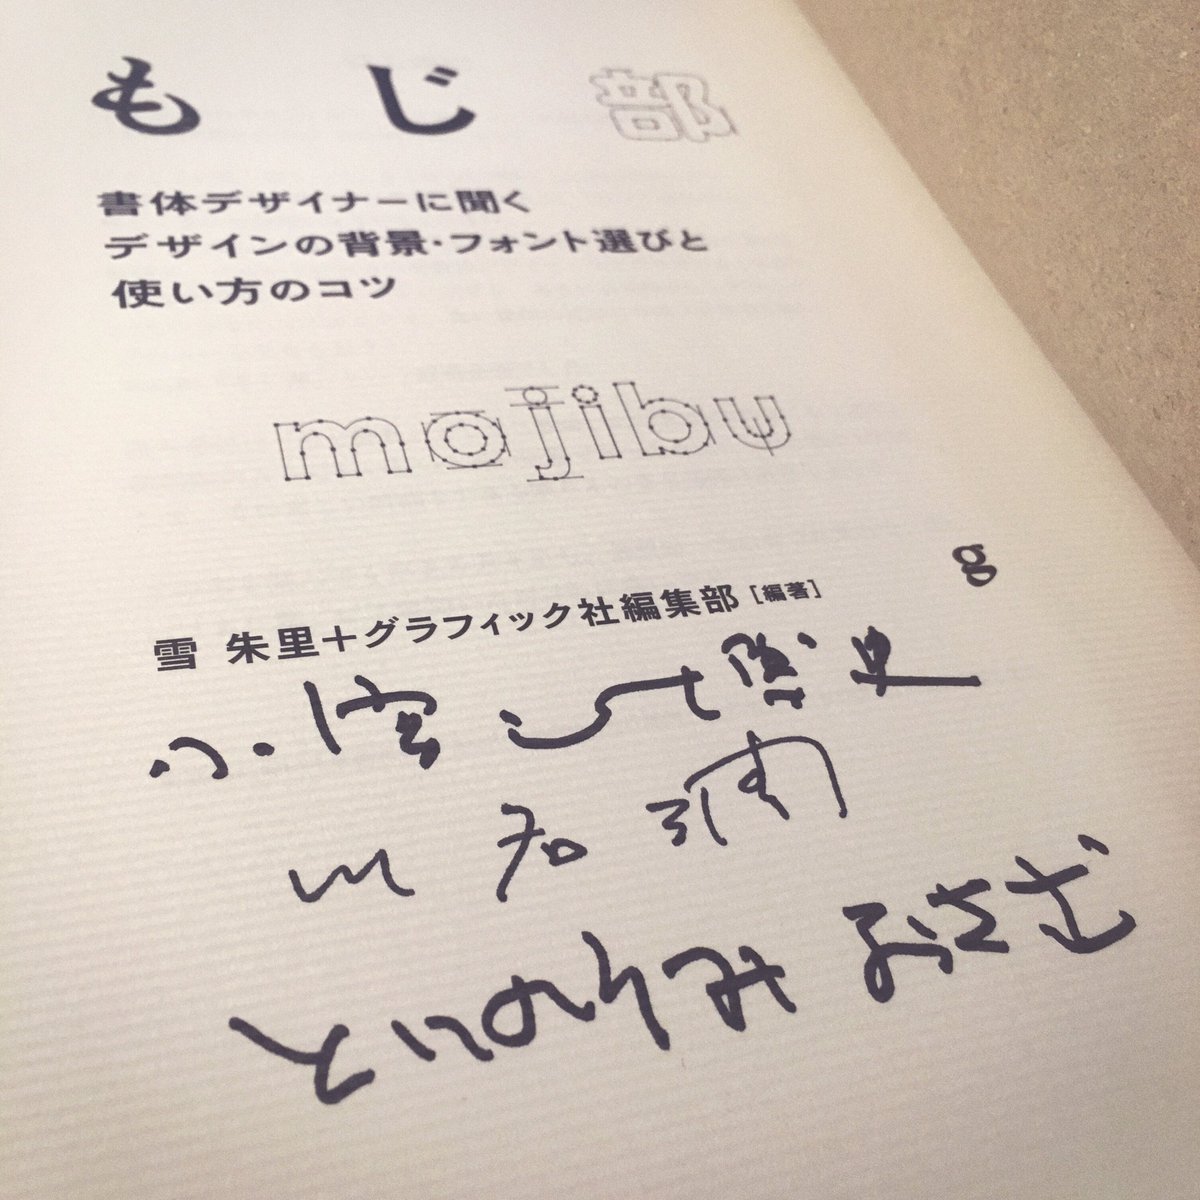 もじ部
書体デザイナーに聞く
デザインの背景・フォント選びと
使い方のコツ
mojibu
g
雪 朱里+グラフィック社編集部 [編著]
小宮山博史
とりのうみ おさむ